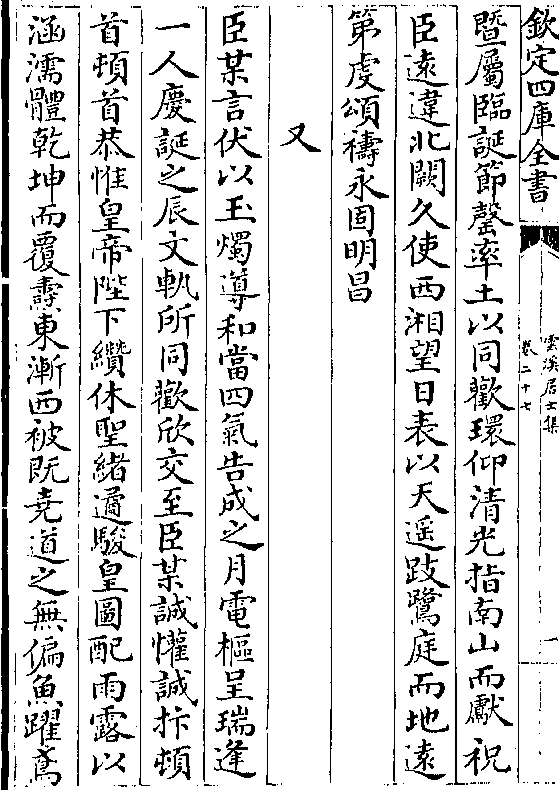 欽定四庫全書
雲溪居士集
卷二十七
暨屬臨誕節罄率土以同歡環仰清光指南山而獻祝
臣遠違北闕久使西湘望日表以天遥跂鷺庭而地遠
第虔頌禱永固明昌
又
臣某言伏以玉燭導和當四氣告成之月電樞呈瑞逢
一人慶誕之辰文軌所同歡欣交至臣某誠懽誠抃頓
首頓首恭惟皇帝陛下纘休聖緒遹駿皇圖配雨露以
涵濡體乾坤而覆燾東漸西被既堯道之無偏魚躍鳶